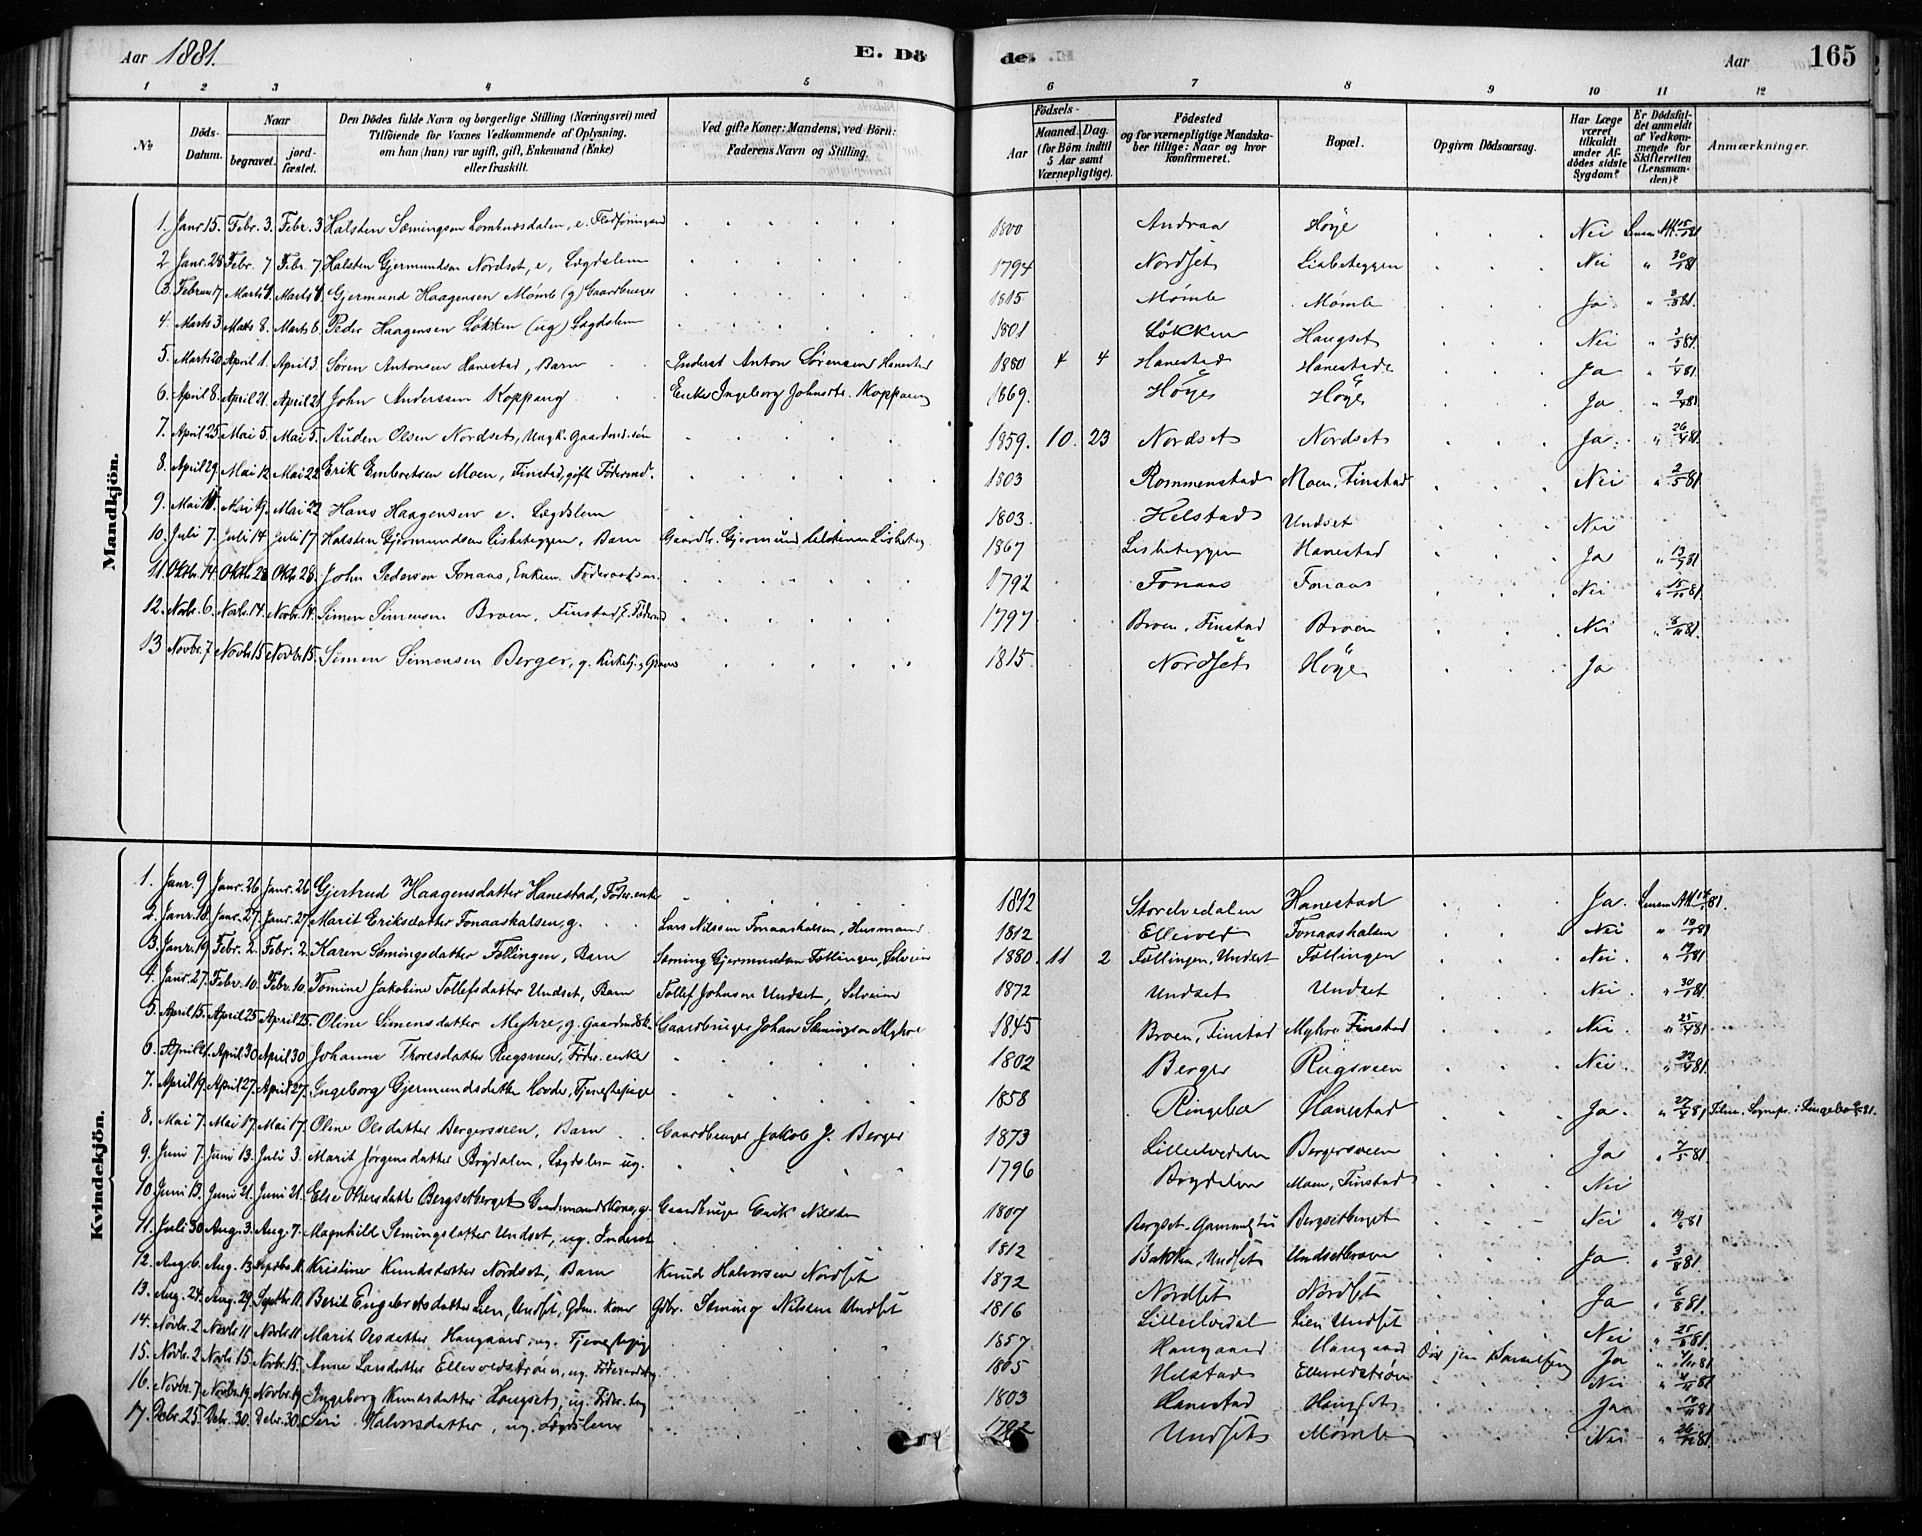 Aar 1881. E. Dö de. Aar 165
1 2 3 4 5 6 7 8 9 10 11 12
№ Döds-Datum. Naar begravet. jordfæstet. Den Dödes fulde Navn og borgerlige Stilling (Næringsvei) med Tilföiende for Voxnes Vedkommende af Oplysning. om han (hun) var ugift, gift, Enkemand (Enke) eller fraskilt. Ved gifte Koner: Mandens, ved Börn: Faderens Navn og Stilling. Födsels- Aar Maaned. Dag. (for Börn indtil 5 Aar samt Værnepligtige). Födested og for værnepligtige Mandskaber tillige: Naar og hvor Konfirmeret. Bopæl. Opgiven Dödsaarsag. Har Læge været tilkaldt under Afdödes sidste Sygdom? Er Dödsfaldet anmeldt af Vedkommende for Skifteretten (Lensmanden)? Anmærkninger.
Mandkjön.
1. Janr. 15. Febr. 3. Febr. 3 Halsten Sæmingsen Lombnæsdalen, e. 1800 Andraa Höye Nei
2 Janr. 28 Febr. 7 Febr. 7. Halsten Gjermundsen Nordset, e, Lægdslem 1794 Nordset Lisbeteggen Nei " 30/1 81
3. Februar 17 Gjermund Haagensen Mømb (g) Gaardbruger 1815 Mømb Mømb Ja " 3/3 81.
4. Marts 3 Marts 8. Marts 8. Peder Haagensen Løkken (ug) Lægdslem 1801 Løkken Haugset Nei " 3/3 81.
5. Marts 20 April 1. April 3. Søren Antonsen Hanestad, Barn Inderst Anton Sørensen Hanestad 1880 4 4 Hanestad Hanestad Ja " 1/4 81
6. April 8. April 21. April 21 John Anderssen Koppang Enke Ingeborg Johnsdtr. Koppang 1869. Höye Höye Ja. " 9/4 81.
7. April 25 Mai 5. Mai 5. Auden Olsen Nordset, Ungk. Gaardmd. søn 1859. 10. 23 Nordset Nordset Ja. " 26/4 81.
8. April 29. Mai 12. Mai 22. Erik Embretsen Moen, Finstad, gift Födermd. 1803 Rommenstad Moen, Finstad Nei " 2/5 81.
9. Mai Mai 19. Mai 22 Hans Haagensen e. Lægdslem 1803. Helstad Undset Nei
10. Juli 7. Juli 14 Juli 17 Halsten Gjermundsen Lisbeteggen, Barn Gaardbr. Gjermund Halstensen Lisbeteg. 1867 Lisbeteggen Hanestad Ja " 13/7 81
11. Oktbr. 14. Oktbr. 28. Oktbr. 28. John Pedersen Fonaas, Enkem. Föderaadsm. 1792 Fonaas Fonaas Nei " 15/10 81.
12. Novbr. 6. Novbr. 14. Novbr. 14. Simen Simensen Broen, Finstad, E. Föderaad 1797 Broen, Finstad Broen Nei " 8/11 81.
13 Novbr. 7 Novbr. 15 Novbr. 15. Simen Simensen Berger, g. Kirketj. og Graver 1815. Nordset Höye Ja
Kvindekjön.
1. Janr. 9 Janr. 26 Janr. 26 Gjertrud Haagensdatter Hanestad, Föder. enke 1812 Storelvedalen Hanestad Ja.
2. Janr. 18. Janr. 27. Janr. 27. Marit Eriksdatter Fonaashalsen, g. Lars Nilssen Fonaashalsen, Husmand 1812 Ellevold Fonaashalsen Nei " 19/1 81
3. Janr. 19 Febr. 2. Febr. 2. Karen Sæmingsdatter Föllingen, Barn Sæming Gjermundsen Föllingen, Selveier 1880. 11 2 Föllingen, Undset Föllingen Nei. " 19/1 81
4. Janr. 27. Febr. 10. Febr. 10. Tomine Jakobine Tollefsdatter Undset, Barn Tollef Johnsen Undset, Selveier 1872 Undset Undset Nei " 30/1 81
5. April 15. April 25 April 25. Oline Simensdatter Myhre, g. Gaardmdsk. Gaardbruger Johan Sæmingsen Myhre 1845 Broen, Finstad Myhre Finstad Nei. " 25/4 81.
6. April April 30 April 30 Johanne Thoresdatter Rugsveen, Föder. enke 1802 Berger Rugsveen Nei.
7. April 19. April 27. April 27. Ingeborg Gjermundsdatter Hovde, Tjenestepige 1858 Ringebo Hanestad Ja. " 27/4 81
8. Mai 7. Mai 17. Mai 17. Oline Olsdatter Bergersveen, Barn Gaardbruger Jakob J. Berger 1873 Lilleelvedalen Bergersveen Ja " 7/5 81.
9. Juni 7. Juni 13. Juli 3. Marit Jørgensdatter Brydalen, Lægdslem ug. 1796 Brydalen Moen, Finstad Nei
10 Juni 13. Juni 21. Juni 21. Else Olsdatter Bergsetberget Gaardmandskone, g. Gaardbruger Erik Nilsen 1807 Bergset Bergsetberget Nei " 19/6 81
11. Juli 30 Aug. 3. Aug. 7. Magnhild Semingsdatter Undset, ug. Inderst 1812 Bakken, Undset Undset Ja. " 3/8 81.
12. Aug. 6. Aug. 13 Septbr. 11. Kristine Knudsdatter Nordset, Barn Knud Halvorsen Nordset 1872 Nordset Nordset Ja " 6/8 81.
13. Aug. 24. Aug. 29. Septbr. 11. Berit Engebretsdatter Lien, Undset, Gdm. kone Gdbr. Sæming Nilssen Undset 1816 Lilleelvedal Lien Undset Nei " 25/8 81.
14. Novbr. 2 Novbr. 11 Novbr. 11 Marit Olsdatter Haugaard, ug. Tjenestepig 1857 Haugaard Haugaard Ja
15. Novbr. 2 Novbr. 15 Novbr. 15. Anne Larsdatter Ellevoldstrøen, ug. 1805 Helstad Ellevoldstrøen Nei
16. Novbr. 7. Novbr. 19. Novbr. 19 Ingeborg Knudsdatter Haugset, ug. 1803 Hanestad Haugset Ja
17. Debr. 25. Debr. 30. Debr. 30. Siri Halvorsdatter, ug. Lægdslem 1792 Undset Mømb Nei